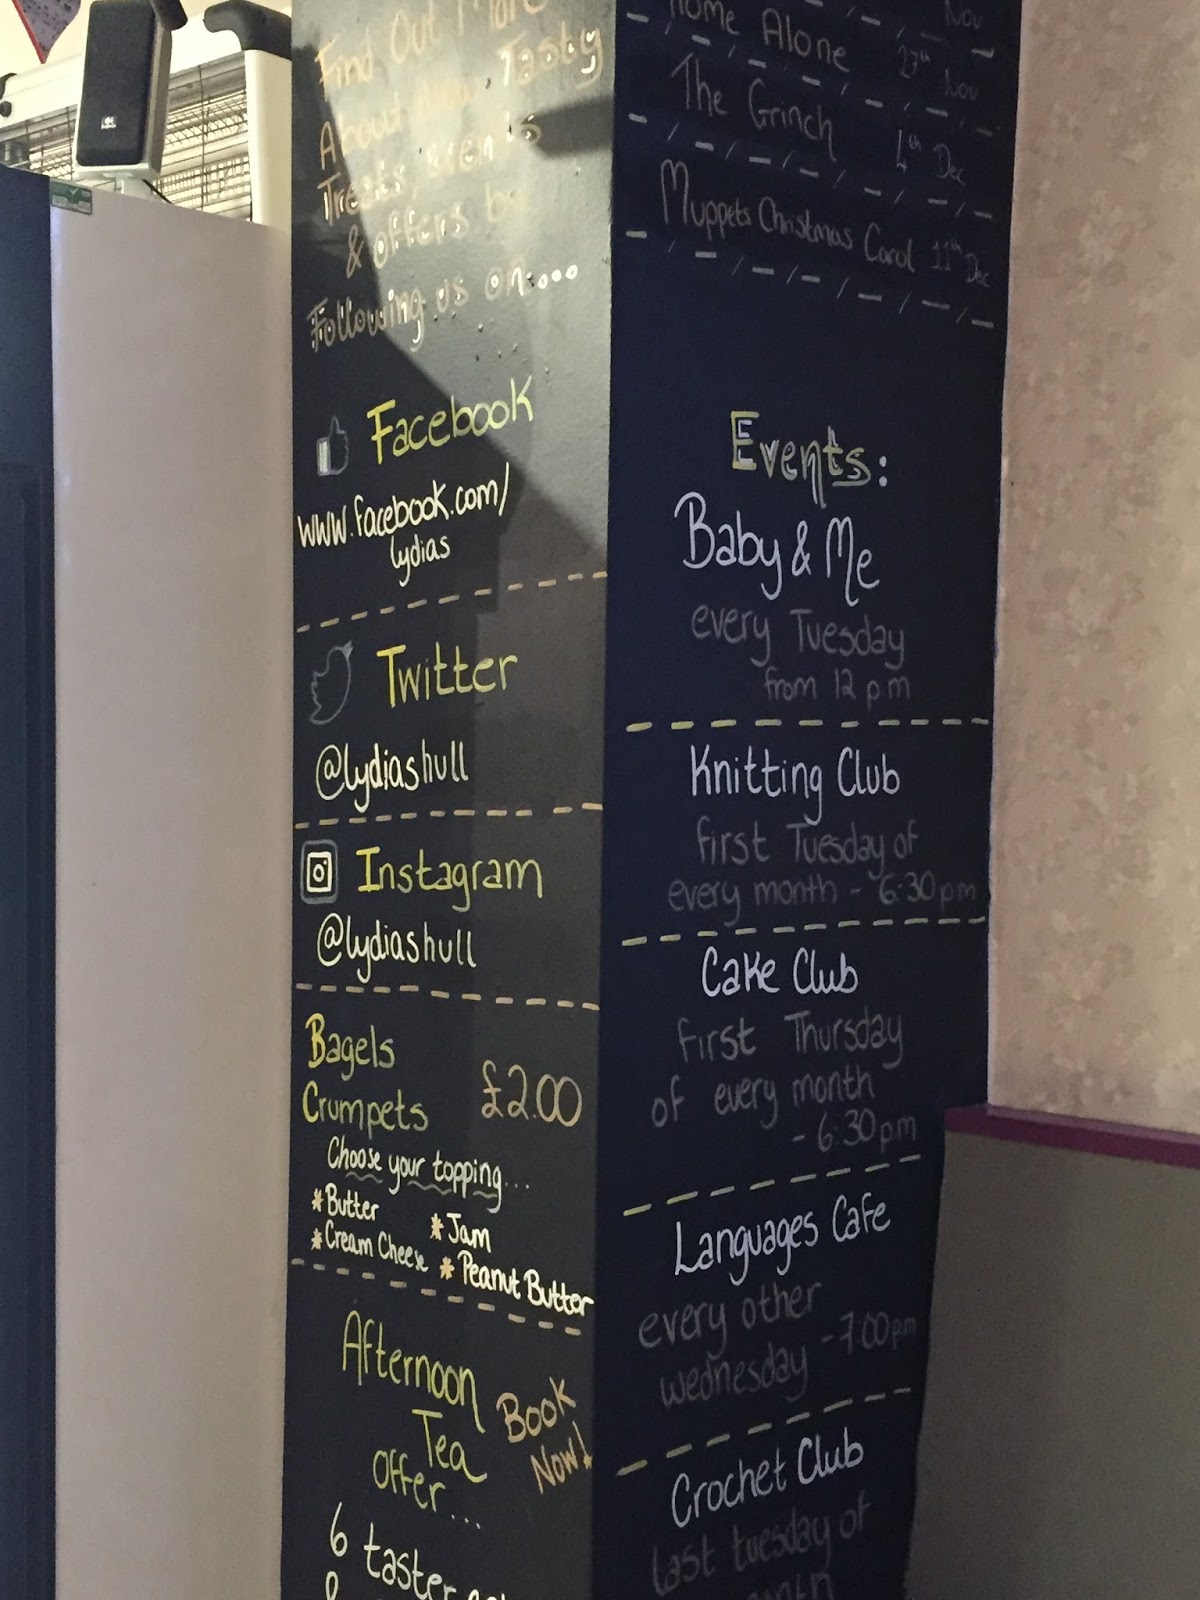 Find Out More
About Tasty
Treats, events
& offers by
Following us on....
Facebook
www.facebook.com/
lydias
Twitter
@lydiashull
Instagram
@lydiashull
Bagels
Crumpets £2.00
Choose your topping...
*Butter *Jam
*Cream Cheese *Peanut Butter
Afternoon
Tea
Offer....
Book
Now!
6 taster
Nov
Home Alone 27th Nov
The Grinch 4th Dec
Muppets Christmas Carol 11th Dec
Events:
Baby & Me
every Tuesday
from 12pm
Knitting Club
first Tuesday of
every month - 6:30pm
Cake Club
first Thursday
of every month
- 6:30pm
Languages Cafe
every other
wednesday - 7:00pm
Crochet Club
last tuesday of